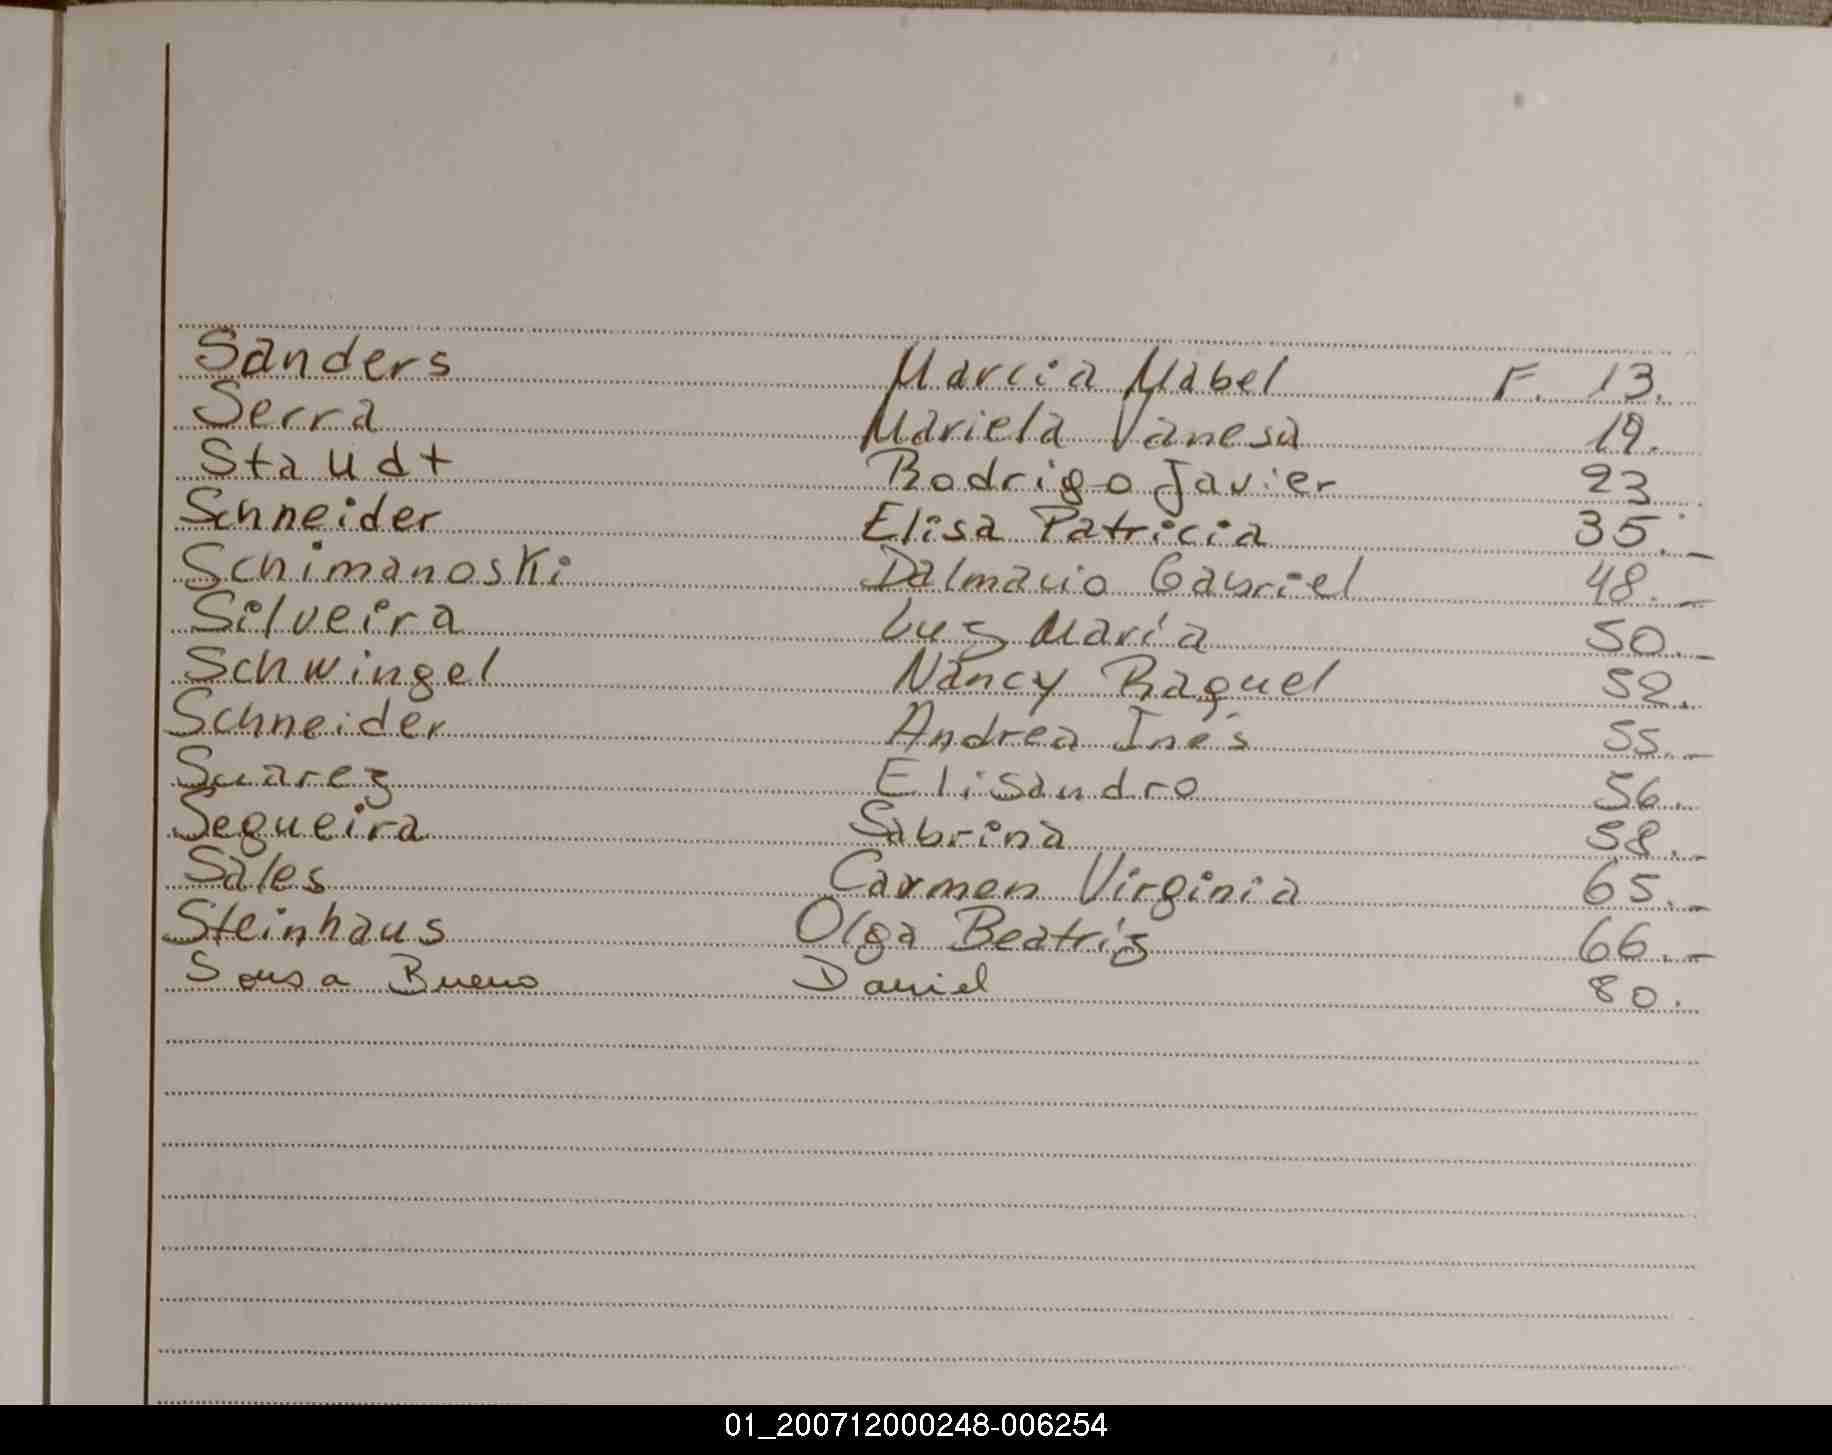 Sanders Marcia Mabel F. 13.
Serra Mariela Vanesa 19.
Staudt Rodrigo Javier 23
Schneider Elisa Patricia 35.-
Schimanoski Dalmacio Gabriel 48.-
Silveira Luz María 50.-
Schwingel Nancy Raquel 52.
Schneider Andrea Inés 55.-
Suarez Elisandro 56.
Sequeira Sabrina 58.-
Sales Carmen Virginia 65.-
Steinhaus Olga Beatriz 66.-
Sousa Bueno Daniel 80.
01_200712000248-006254